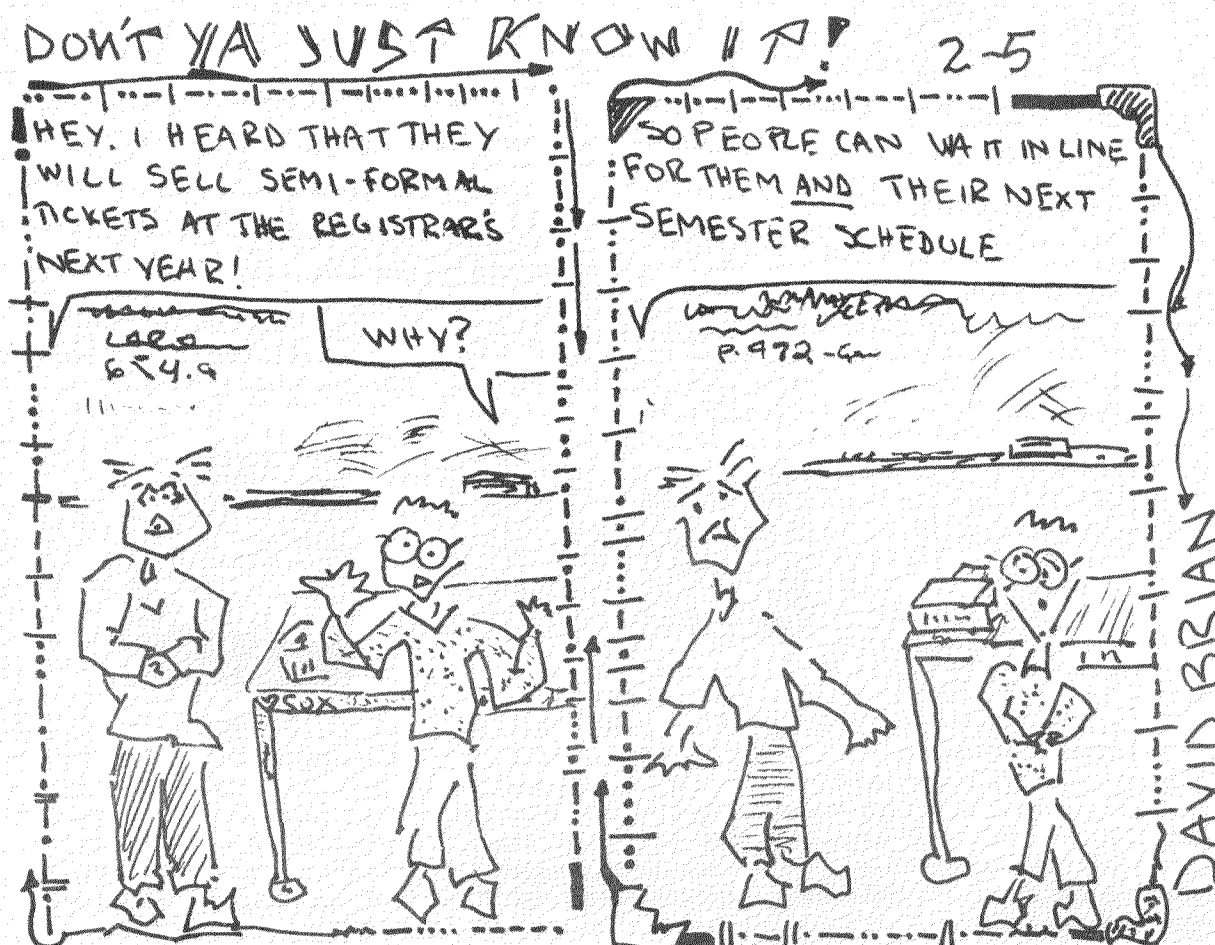 DON'T YA JUST KNOW IT!
2-5
HEY. I HEARD THAT THEY
WILL SELL SEMI-FORMAL
TICKETS AT THE REGISTRAR'S
NEXT YEAR!
WHY?
SO PEOPLE CAN WAIT IN LINE
FOR THEM AND THEIR NEXT
SEMESTER SCHEDULE
DAVID BRIAN